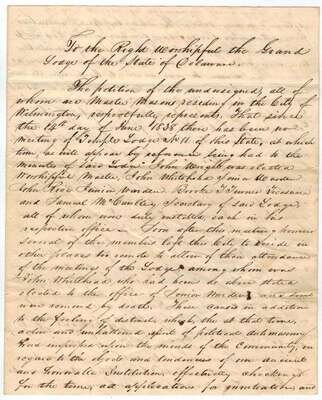 To the Right Worshipful the Grand
Lodge of the State of Delaware.
The petition of the undersigned, all of
whom are Master Masons residing in the City of
Wilmington, respectfully represents, That since
the 14th day of June 1838 there has been no
meeting of Temple Lodge No 11 of this State, at which
time, as will appear by reference being had to the
minutes of said Lodge, John Wright was elected
Worshipful Master, John Whitehead Senior Warden
John Rice Junior Warden Brooke T Turner Treasurer
and Samuel McCaulley, Secretary of said Lodge,
all of whom were duly installed each in his
respective office – Soon after this meeting however
several of the members left this City to reside in
other places too remote to allow of their attendance
of the meetings of the Lodge among whom was
John Whitehead who had been as above stated
elected to the office of Senior Warden and some
were removed by death. These causes in addition
to the feeling of distrust which, the at that time,
active and unfettered spirit of political antimasonry
had impressed upon the minds of the Community, in
regard to the objects and tendencies of our ancient
and honorable Institution, effectively checking
for the time, all applications for initiation and